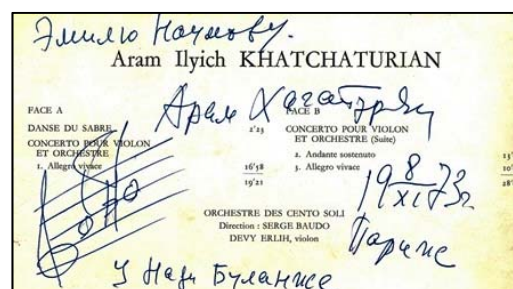 Эмилю Наумову.
Aram Ilyich KHATCHATURIAN
Арам Хачатурян
FACE A
FACE B
DANSE DU SABRE 2'23
CONCERTO POUR VIOLON
ET ORCHESTRE
1. Allegro vivace 16'58
19'21
CONCERTO POUR VIOLON
ET ORCHESTRE (Suite)
2. Andante sostenuto
3. Allegro vivace
19 8/XI 73г.
ORCHESTRE DES CENTO SOLI
Direction : SERGE BAUDO
DEVY ERLIH, violon
Париж
У Нади Буланже